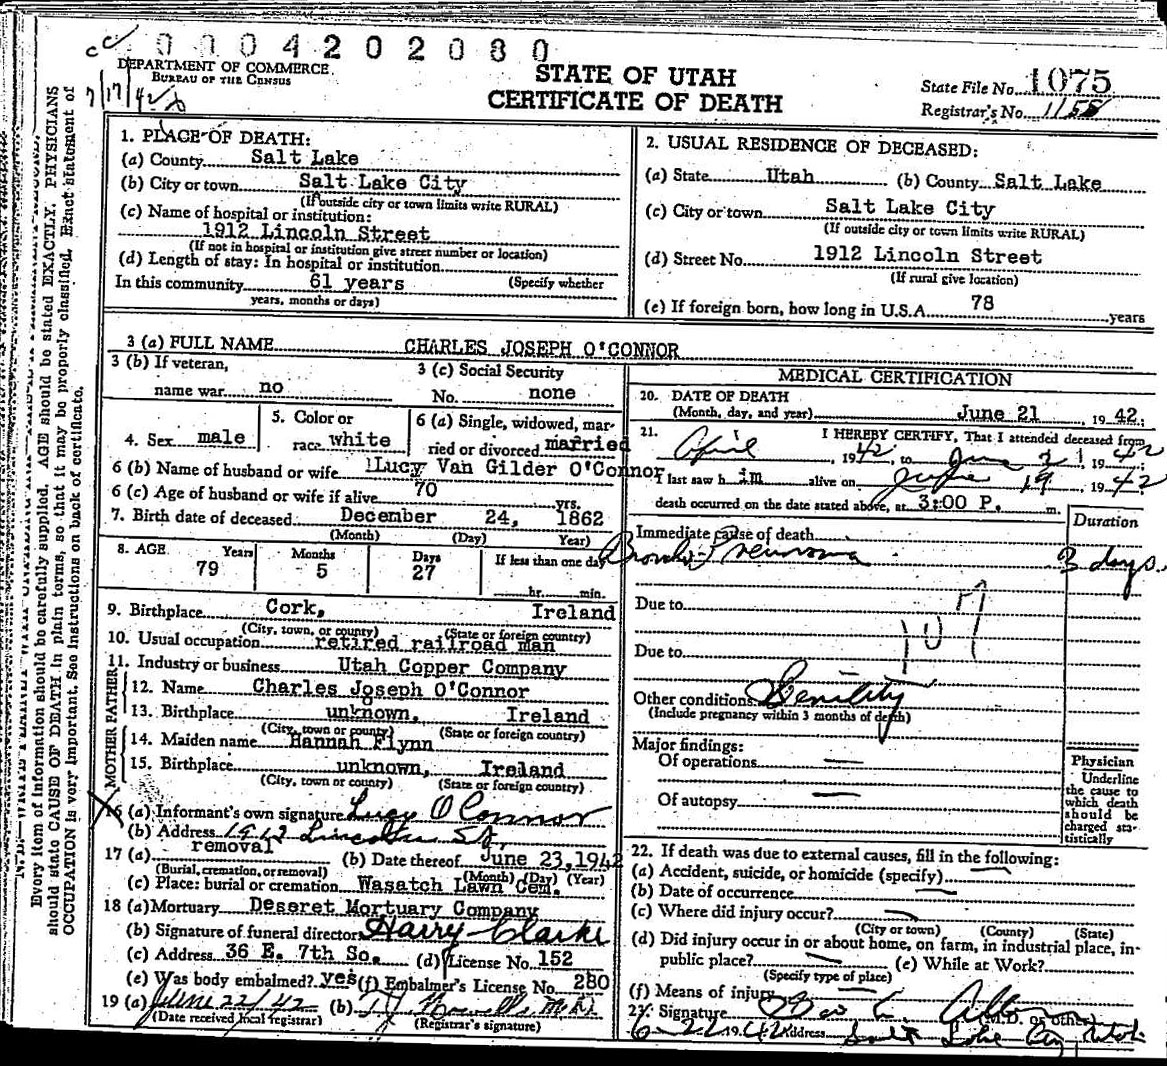 0004202080
DEPARTMENT OF COMMERCE
BUREAU OF THE CENSUS
7/17/42
STATE OF UTAH
CERTIFICATE OF DEATH
State File No. 1075
Registrar's No. 1158
1. PLACE OF DEATH:
(a) County Salt Lake
(b) City or town Salt Lake City
(If outside city or town limits write RURAL)
(c) Name of hospital or institution:
1912 Lincoln Street
(If not in hospital or institution give street number or location)
(d) Length of stay: In hospital or institution
In this community 61 years (Specify whether
years, months or days)
2. USUAL RESIDENCE OF DECEASED:
(a) State Utah (b) County Salt Lake
(c) City or town Salt Lake City
(If outside city or town limits write RURAL)
(d) Street No. 1912 Lincoln Street
(If rural give location)
(e) If foreign born, how long in U.S.A. 78 years
3 (a) FULL NAME CHARLES JOSEPH O'CONNOR
3 (b) If veteran,
name war no
3 (c) Social Security
No. none
4. Sex male
5. Color or
race white
6 (a) Single, widowed, mar-
ried or divorced married
6 (b) Name of husband or wife Lucy Van Gilder O'Connor
6 (c) Age of husband or wife if alive 70 yrs.
7. Birth date of deceased December 24, 1862
(Month) (Day) Year)
8. AGE Years Months Days If less than one day
79 5 27 hr. min.
9. Birthplace Cork, Ireland
(City, town, or county) (State or foreign country)
10. Usual occupation retired railroad man
11. Industry or business Utah Copper Company
FATHER
12. Name Charles Joseph O'Connor
13. Birthplace unknown, Ireland
(City, town or county) (State or foreign country)
MOTHER
14. Maiden name Hannah Flynn
15. Birthplace unknown, Ireland
(City, town or county) (State or foreign country)
16 (a) Informant's own signature Lucy O'Connor
(b) Address 1912 Lincoln St.
17 (a) removal (b) Date thereof June 23, 1942
(Burial, cremation, or removal) (Month) (Day) (Year)
(c) Place: burial or cremation Wasatch Lawn Cem.
18 (a) Mortuary Deseret Mortuary Company
(b) Signature of funeral director Harry Clarke
(c) Address 36 E. 7th So. (d) License No. 152
(e) Was body embalmed? yes (f) Embalmer's License No. 280
19 (a) June 22/42 (b)
(Date received local registrar) (Registrar's signature)
MEDICAL CERTIFICATION
20. DATE OF DEATH
(Month, day, and year) June 21 1942;
21. I HEREBY CERTIFY, That I attended deceased from
April 1942 to June 21 1942
I last saw h im alive on June 19 1942
death occurred on the date stated above, at 3:00 P. m.
Immediate cause of death Duration
Broncho-Pneumonia 3 days.
Due to
Due to
107
Other conditions Senility
(Include pregnancy within 3 months of death)
Major findings:
Of operations —
Of autopsy —
Physician
Underline
the cause to
which death
should be
charged sta-
tistically
22. If death was due to external causes, fill in the following:
(a) Accident, suicide, or homicide (specify) —
(b) Date of occurrence —
(c) Where did injury occur? —
(City or town) (County) (State)
(d) Did injury occur in or about home, on farm, in industrial place, in-
public place? — (e) While at Work?
(Specify type of place)
(f) Means of injury
23. Signature
(M.D. or other)
6-22 1942 Address Salt Lake City, Utah
Every item of information should be carefully supplied. AGE should be stated EXACTLY. PHYSICIANS
should state CAUSE OF DEATH in plain terms, so that it may be properly classified. Exact statement of
OCCUPATION is very important. See instructions on back of certificate.